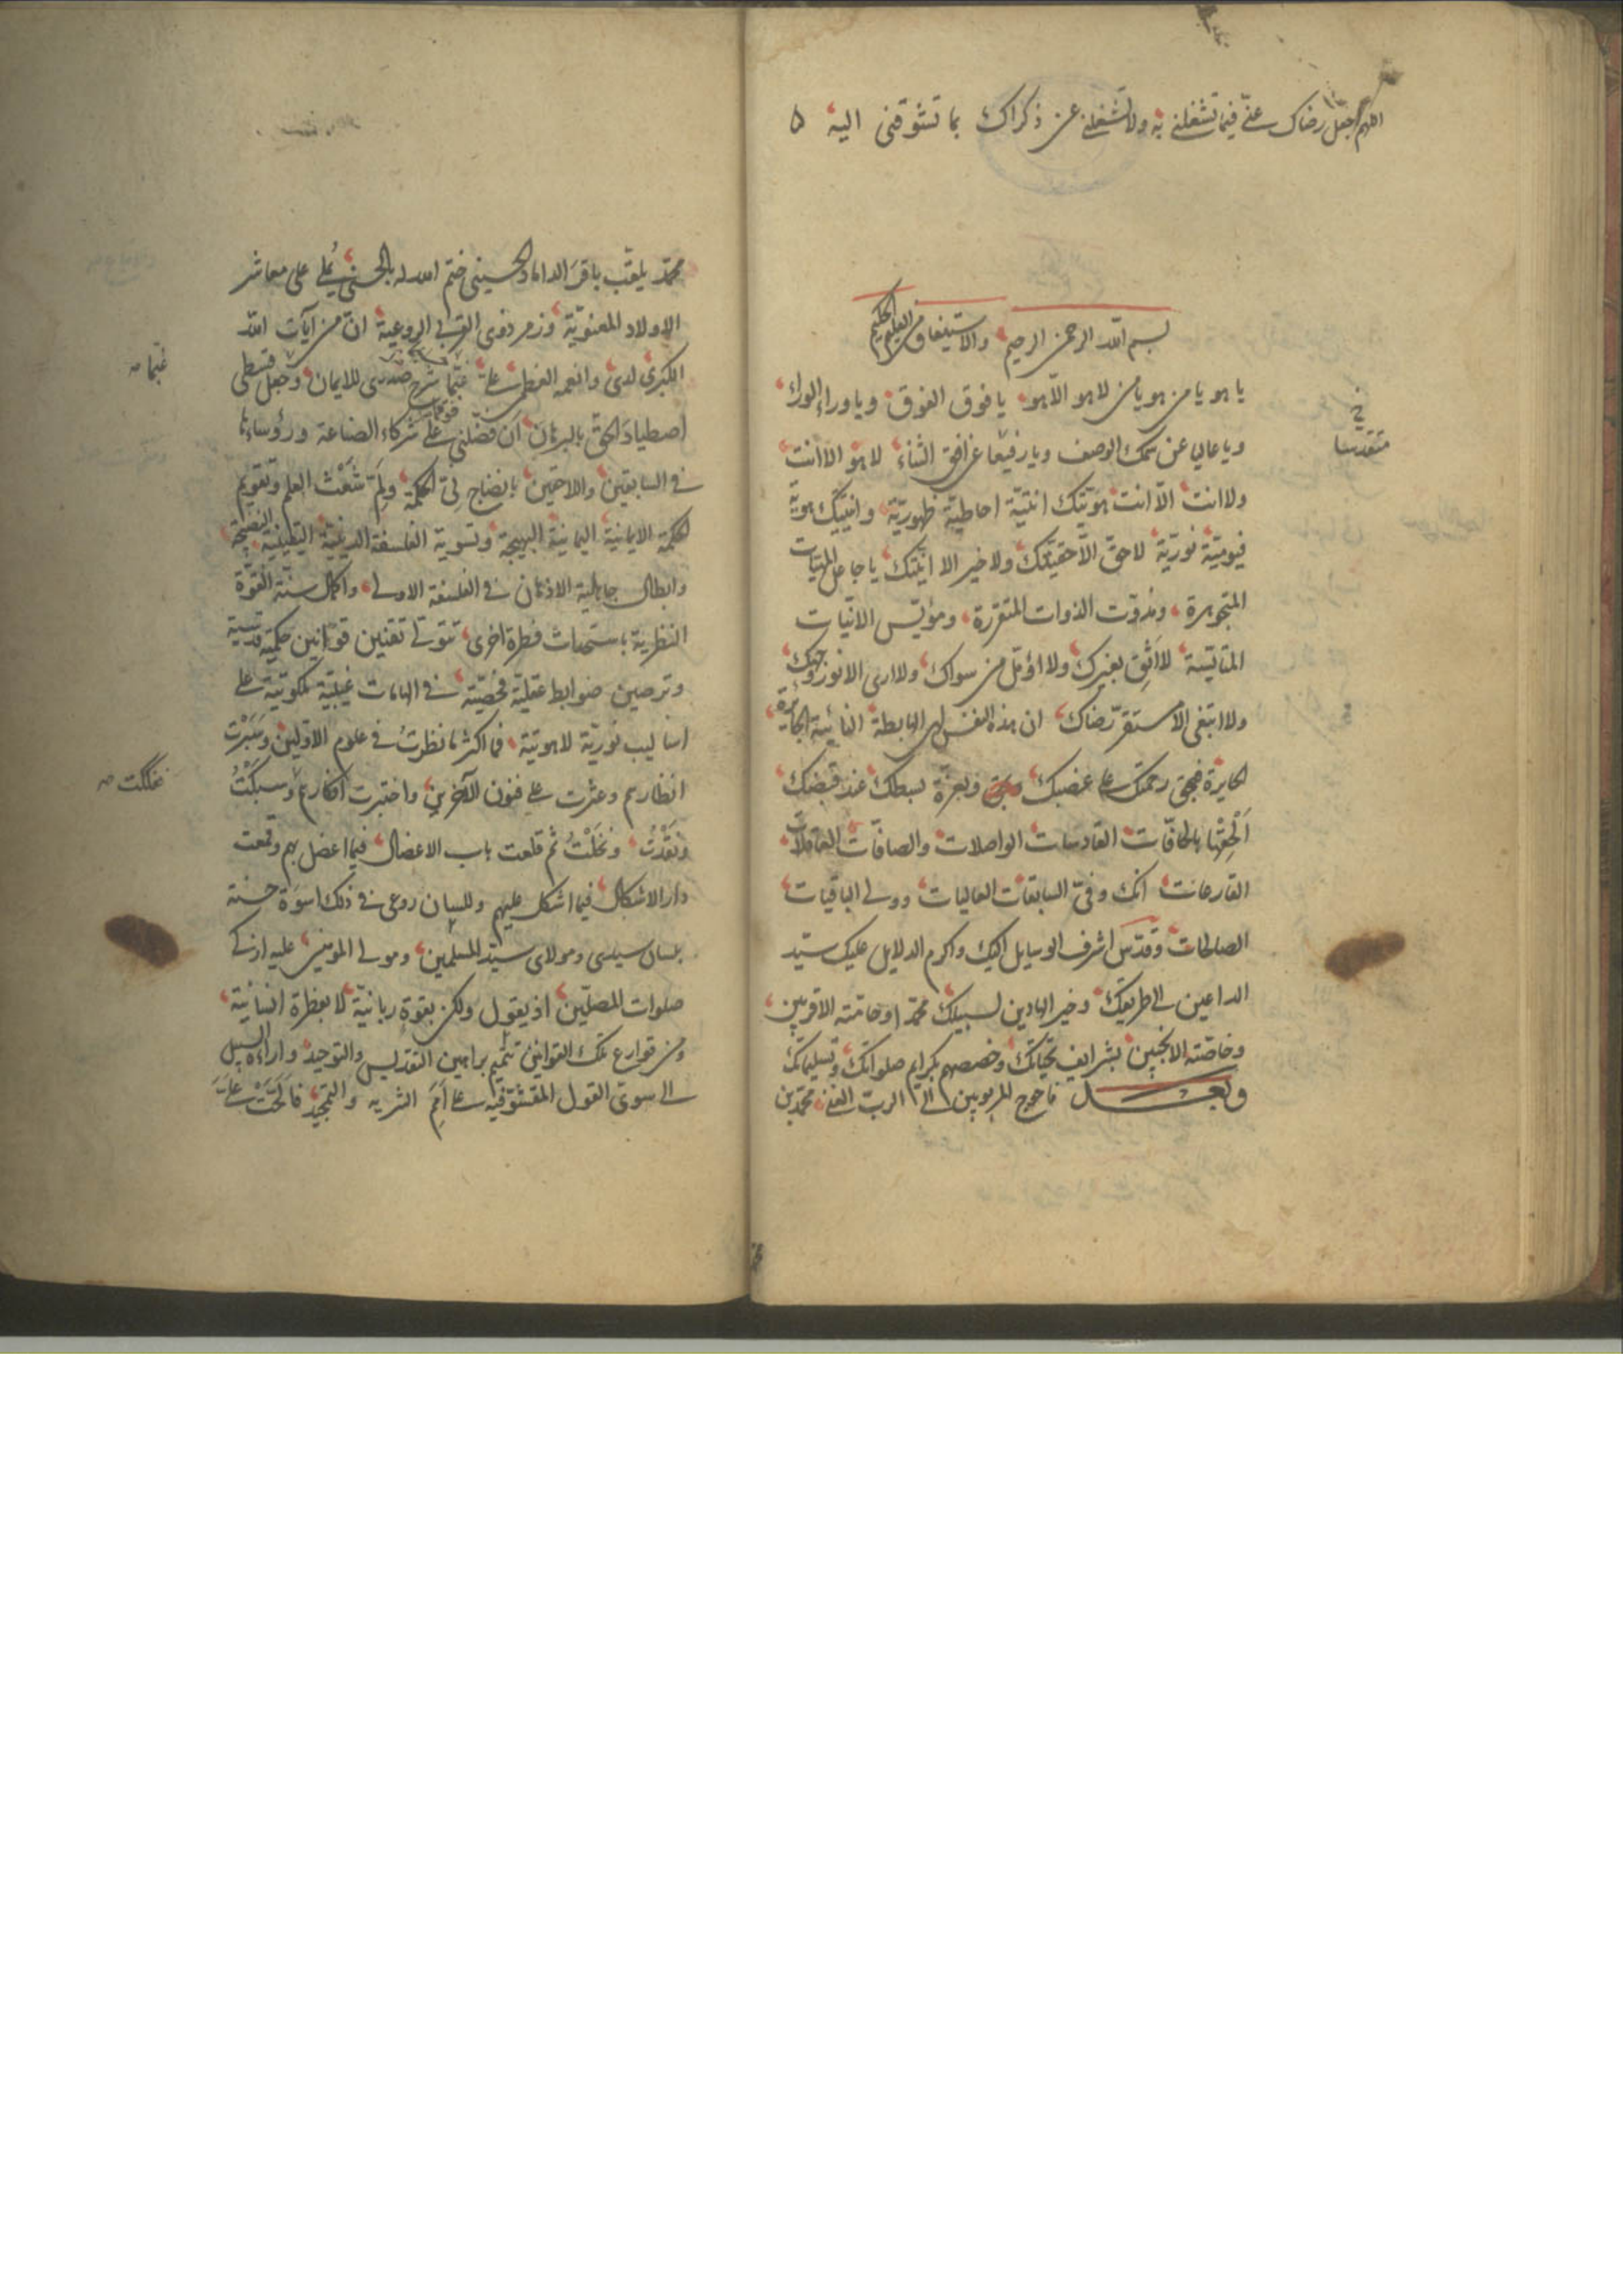 اللهم اجعل رضاك عنّي فيما تشغلني به ولا تشغلني عن ذكراك بما تشوقني اليه
بسم الله الرحمن الرحيم والاستيفاق من العليم الحكيم
يا هو يا من هو يا من لا هو الا هو يا فوق الفوق ويا وراء الوراء
ويا عالي عن سمك الوصف ويا رفيعا عن افق الثناء لا هو الا انت
ولا انت الا انت هويّتك انيّته احاطيّة ظهوريّة وانيّتك هويّة
قيوميّة نوريّة لا حق الا حقيّتك ولا خير الا انيّتك يا جاعل المهيّات
المتجوهرة ومذوّت الذوات المتقررة ومؤيّس الانيّات
المتأيّسة لا اثق بغيرك ولا اؤمّل من سواك ولا ارى الا نور وجهك
ولا ابتغى الا مستقرّ رضاك ان هذه النفس لهى الهابطة النائية الجائرة
الحايرة فبحق رحمتك على غضبك وبعزة بسطك عند قبضك
الحقها بالحافّات القادسات الواصلات والصافّات العاقلات
القارعات انك وفيّ السابقات العاليات وولي الباقيات
الصالحات وقدّس اشرف الوسايل اليك واكرم الدلايل عليك سيّد
الداعين الى طريقك وخير الهادين لسبيلك محمّدا وحامّته الاقربين
وخاصّته الانجبين بشرايف تحيّاتك وخصصهم بكرايم صلواتك وتسليماتك
وبعد فاحوج المربوبين الى الرب الغني محمّد بن
نخ
متقدسا
محمّد يلقّب باقر الداماد الحسيني ختم الله له بالحسنى يُملي على معاشر
الاولاد المعنويّة وزمر ذوى القربى الروعية انّ من آيات الله
الكبرى لديّ وانعمه العظمى عليّ غبّما شرح صدرى للايمان وجعل قسطى
اصطياد الحق بالبرهان ان فضّلني على شركاء الصناعة ورؤسائها
في السابقين واللاحقين بانضاج نيّ الحكمة ولمّ شعث العلم وتقويم
الحكمة الايمانية اليمانية البهيجة وتسوية الفلسفة الدينية اليقينية النضيجة
وابطال جاهلية الاذهان في الفلسفة الاولى واكمال سنّة القوّة
النظرية باستحداث فطرة اخرى تتولّى تقنين قوانين حكمية قدسية
وترصين ضوابط عقليّة فحصيّة في الهامات غيبيّة ملكوتيّة على
اساليب نوريّة لاهوتيّة فما اكثر ما نظرتُ في علوم الاوّلين وسبرت
انظارهم وعثرت على فنون الآخرين واختبرت افكارهم وسبكتُ
ونقدتُ ونخلتُ ثم قلعت باب الاعضال فيما اعضل بهم وقمعت
دار الاشكال فيما اشكل عليهم وللسان روعى في ذلك اسوة حسنة
بلسان سيدى ومولاى سيّد المسلمين ومولى المومنين عليه ازكى
صلوات المصلّين اذ يقول ولكن بقوة ربانيّة لا بفطرة انسانيّة
ومن قوارع تلك القوانين تتميم براهين التقديس والتوحيد واراءة السبيل
الى سوىّ القول المقشوّ فيه على امم التنزيه والتمجيد
غبّما صه
صه